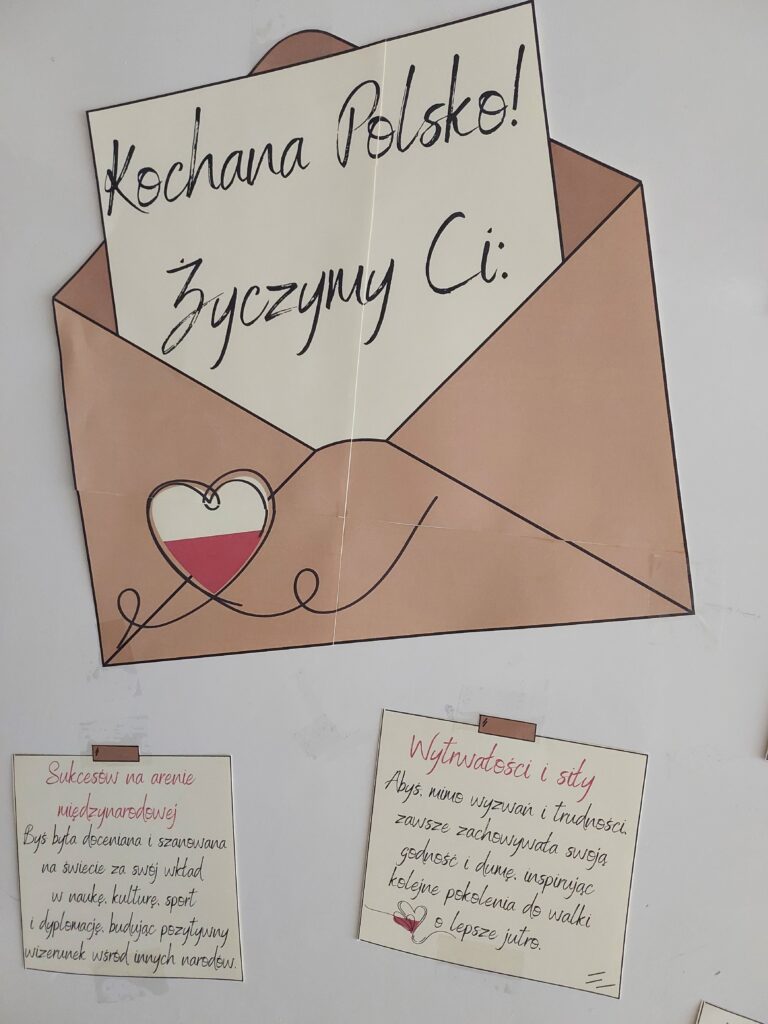 Kochana Polsko!
Życzymy Ci:
Sukcesów na arenie
międzynarodowej
Byś była doceniana i szanowana
na świecie za swój wkład
w naukę, kulturę, sport
i dyplomację, budując pozytywny
wizerunek wśród innych narodów.
Wytrwałości i siły
Abyś, mimo wyzwań i trudności,
zawsze zachowywała swoją
godność i dumę, inspirując
kolejne pokolenia do walki
o lepsze jutro.